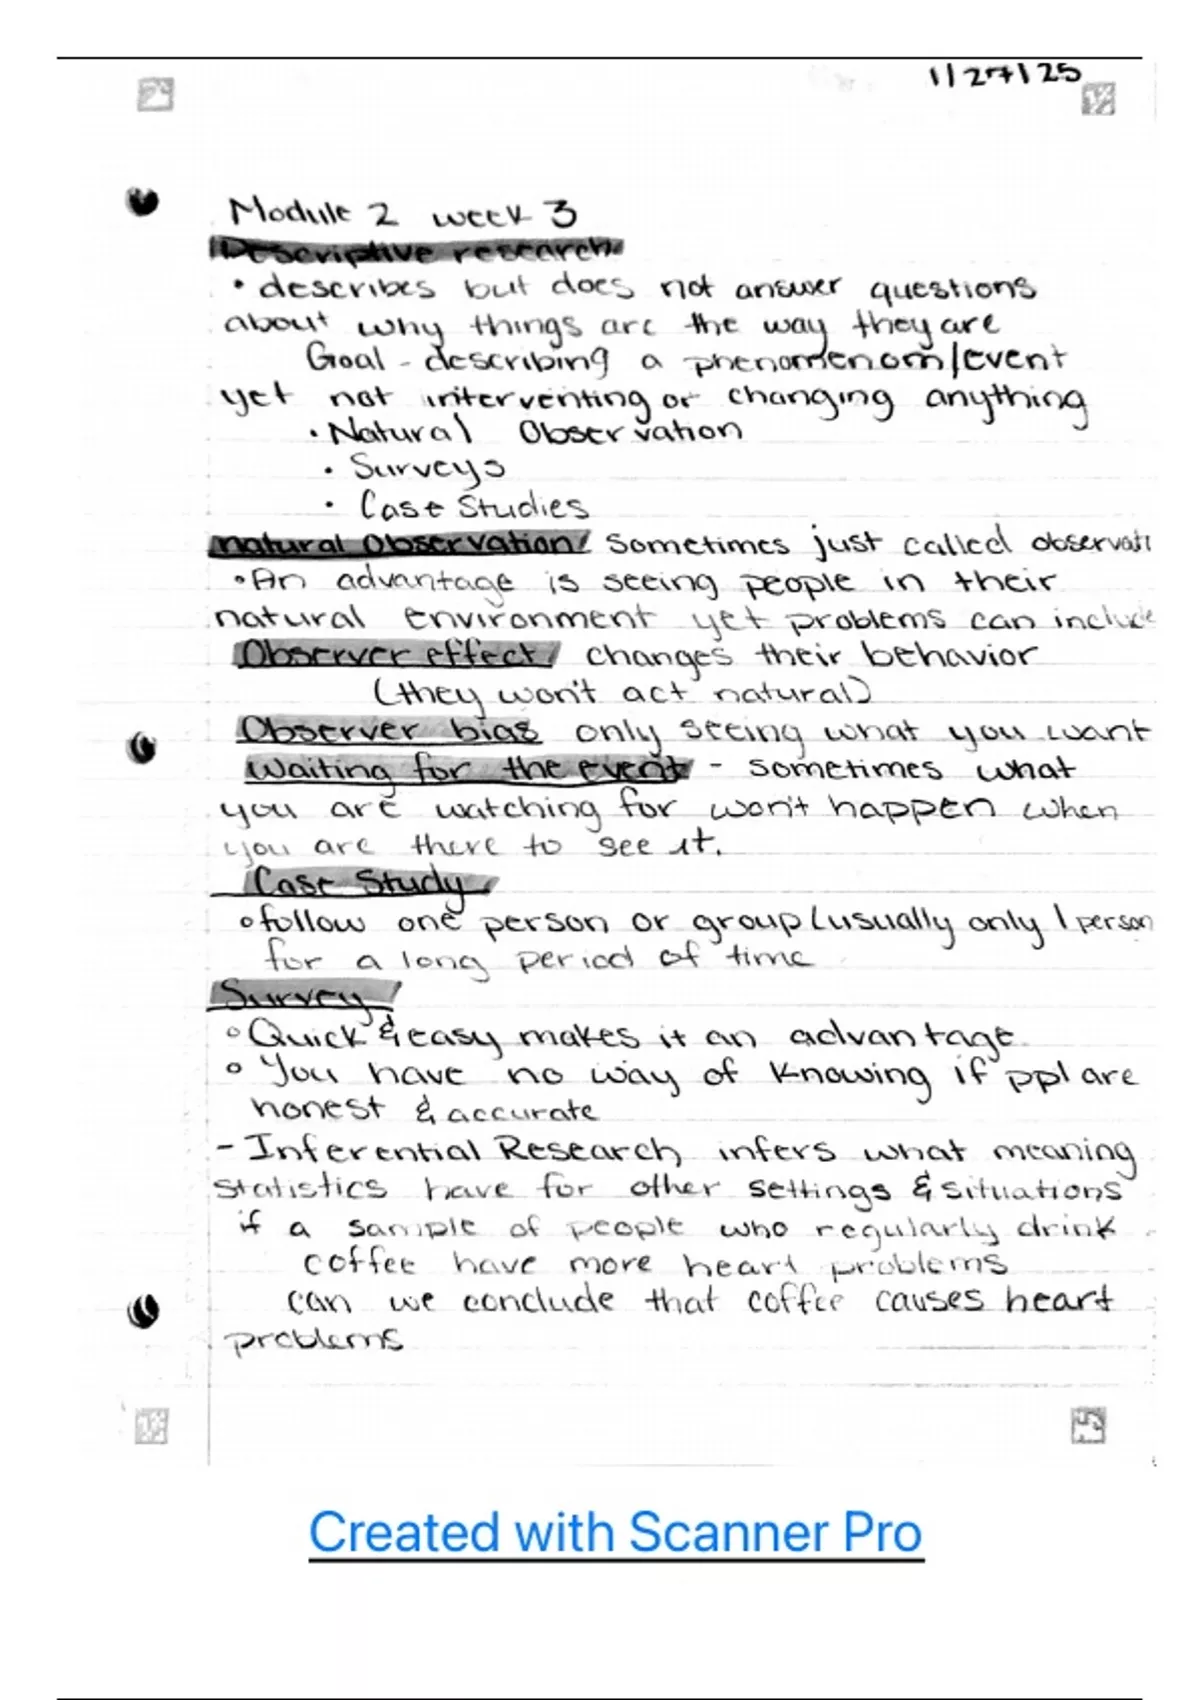 1/27/25
Module 2 week 3
Descriptive research
• describes but does not answer questions
about why things are the way they are
Goal - describing a phenomenom/event
yet not interventing or changing anything
• Natural Observation
• Surveys
• Case Studies
natural Observation Sometimes just called observati
• An advantage is seeing people in their
natural environment yet problems can include
Observer effect changes their behavior
(they won't act natural)
Observer bias only seeing what you want
Waiting for the event - sometimes what
you are watching for won't happen when
you are there to see it.
Case Study
• follow one person or group (usually only 1 person
for a long period of time
Survey
• Quick & easy makes it an advantage.
• You have no way of knowing if ppl are
honest & accurate
- Inferential Research infers what meaning
statistics have for other settings & situations
if a sample of people who regularly drink
coffee have more heart problems
can we conclude that coffee causes heart
problems
Created with Scanner Pro